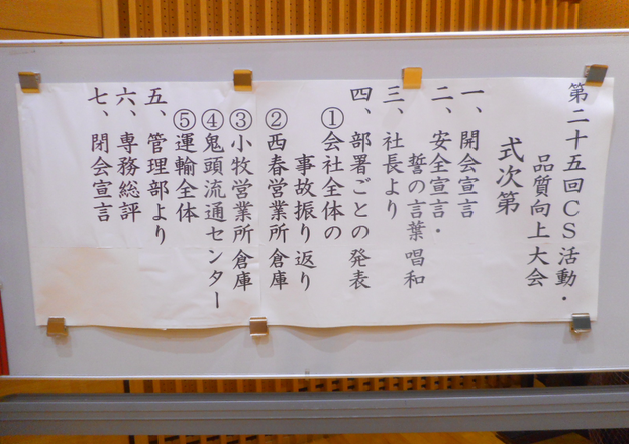 第二十五回CS活動・
品質向上大会
式次第
一、開会宣言
二、安全宣言・
誓の言葉唱和
三、社長より
四、部署ごとの発表
①会社全体の
事故振り返り
②西春営業所倉庫
③小牧営業所倉庫
④鬼頭流通センター
⑤運輸全体
五、管理部より
六、専務総評
七、閉会宣言